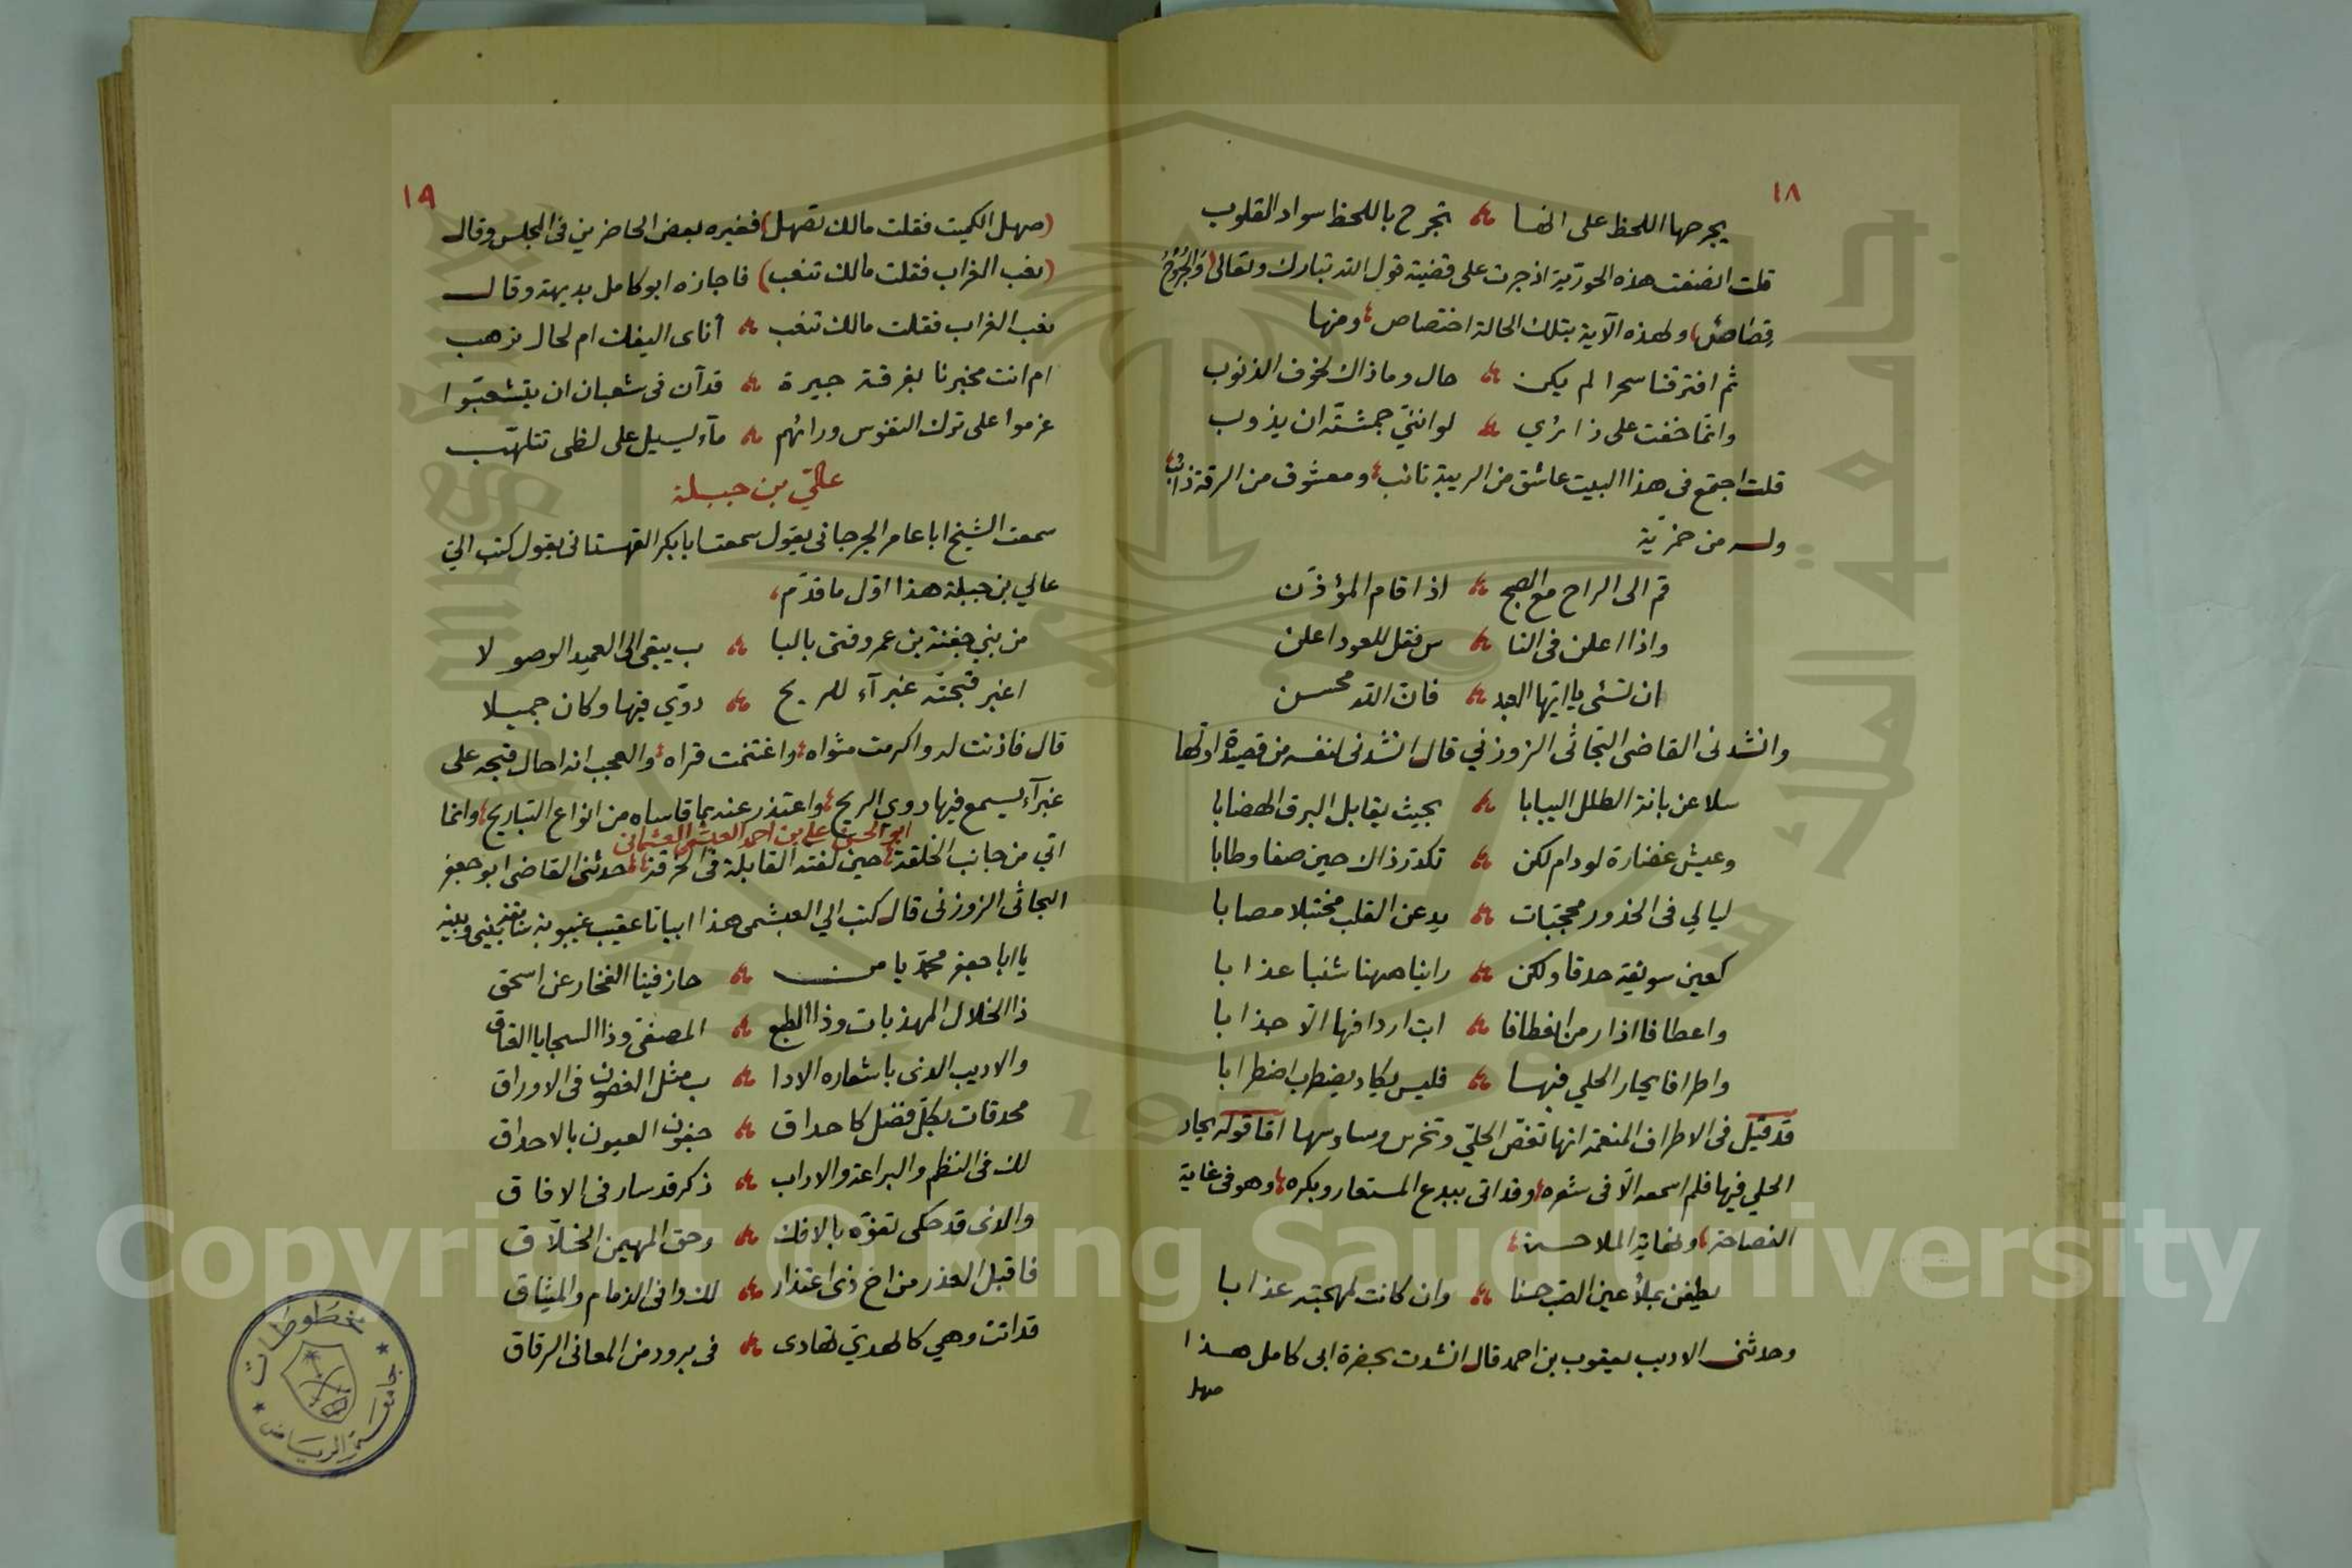 ١٨
يجرحها اللحظ على انها ؞ تجرح باللحظ سواد القلوب
قلت انصفت هذه الحورّية اذ جرت على قضية قول الله تبارك وتعالى (وَالجُرُوْحُ
قِصَاصٌ) ولهذه الآية بتلك الحالة اختصاص، ومنها
ثم افترقنا سحرا لم يكن ؞ حال وماذاك لخوف الذنوب
وانما خفت على زائري ؞ لو انني جمشته ان يذوب
قلت اجتمع فى هذا البيت عاشق من الريبة تائب، ومعشوق من الرقة ذائب،
وله من خمريّة
قم الى الراح مع الصبح ؞ اذا قام المؤذن
واذا اعلن فى النا ؞ س فقل للعود اعلن
ان تسئى يا ايها العبد ؞ فان الله محسن
وانشدنى القاضى البحاثى الزوزني قال انشدنى لنفسه من قصيدة اولها
سلا عن بانة الطلل اليبابا ؞ بحيث يقابل البرق الهضابا
وعيش غضارة لو دام لكن ؞ تكدر ذاك حين صفا وطابا
ليالي فى الخدور محجبات ؞ يدعن القلب مختبلا مصابا
كعين سويقة حدقا ولكن ؞ راينا ههنا شنبا عذابا
واعطافا اذا رمن انعطافا ؞ ابت اردافها الّا جذابا
واطرافا يحار الحلي فيها ؞ فليس يكاد يضطرب اضطرابا
قد قيل فى الاطراف المنعمة انها تغصّ الحليّ وتخرس وساوسها امّا قوله يحار
الحلي فيها فلم اسمعه الّا فى شعره، وقد اتى ببدع المستعار وبكره، وهو فى غاية
الفصاحة، ونهاية الملاحة،
يطيفن بملأ عين الصب حسنا ؞ وان كانت لمهجته عذابا
وحدثنى الاديب يعقوب بن احمد قال انشدت بحضرة ابى كامل هذا
صهل
١٩
(صهل الكميت فقلت مالك تصهل) فغيره بعض الحاضرين فى المجلس وقال
(نغب الغراب فقلت مالك تنغب) فاجازه ابو كامل بديهة وقال
نغب الغراب فقلت مالك تنغب ؞ أناى اليفك ام لحال تزهب
ام انت مخبرنا بفرقة جيرة ؞ قد آن فى شعبان ان يتشعبوا
عزموا على ترك النفوس ورائهم ؞ مآء يسيل على لظى تتلهب
عالي بن جبلة
سمعت الشيخ ابا عامر الجرجانى يقول سمعت ابا بكر القهستانى يقول كتب اليّ
عالي بن جبلة هذا اوّل ما قدّم،
من بني جفنة بن عمرو فتى بالبا ؞ ب يبقى الى العميد الوصولا
اغبر قبحته غبرآء للريح ؞ دويّ فيها وكان جميلا
قال فاذنت له واكرمت مثواه، واغتنمت قراه، والعجب انه احال قبحه على
غبرآء يسمع فيها دوى الريح، واعتذر عنه بما قاساه من انواع التباريح، وانما
اتي من جانب الخلقة، حين لفته القابلة فى الخرقة، حدثنى القاضى ابو جعفر
ابو الحسن على بن احمد العبشمى العثمانى
البحاثى الزوزنى قال كتب الي العبشمى هذا ابياتا عقيب غيبوبة بينى وبينه
يا ابا جعفر محمّد يا من ؞ حاز فينا الفخار عن اسحق
ذا الخلال المهذبات وذا الطبع ؞ المصفىّ وذا السجايا العتاق
والاديب الذى باشعاره الادا ؞ ب مثل الغصون فى الاوراق
محدقات بكلّ فضل كاحداق ؞ جفون العيون بالاحداق
لك فى النظم والبراعة والاداب ؞ ذكر قد سار فى الافاق
والذى قد حكى تفوّه بالافك ؞ وحق المهيمن الخلّاق
فاقبل العذر من اخ ذى اعتذار ؞ لك وافى الذمام والميثاق
قد اتت وهي كالهديّ تهادى ؞ فى برود من المعانى الرقاق
مخطوطات
جامعة الرياض
جامعة الملك سعود
1957
Copyright © King Saud University